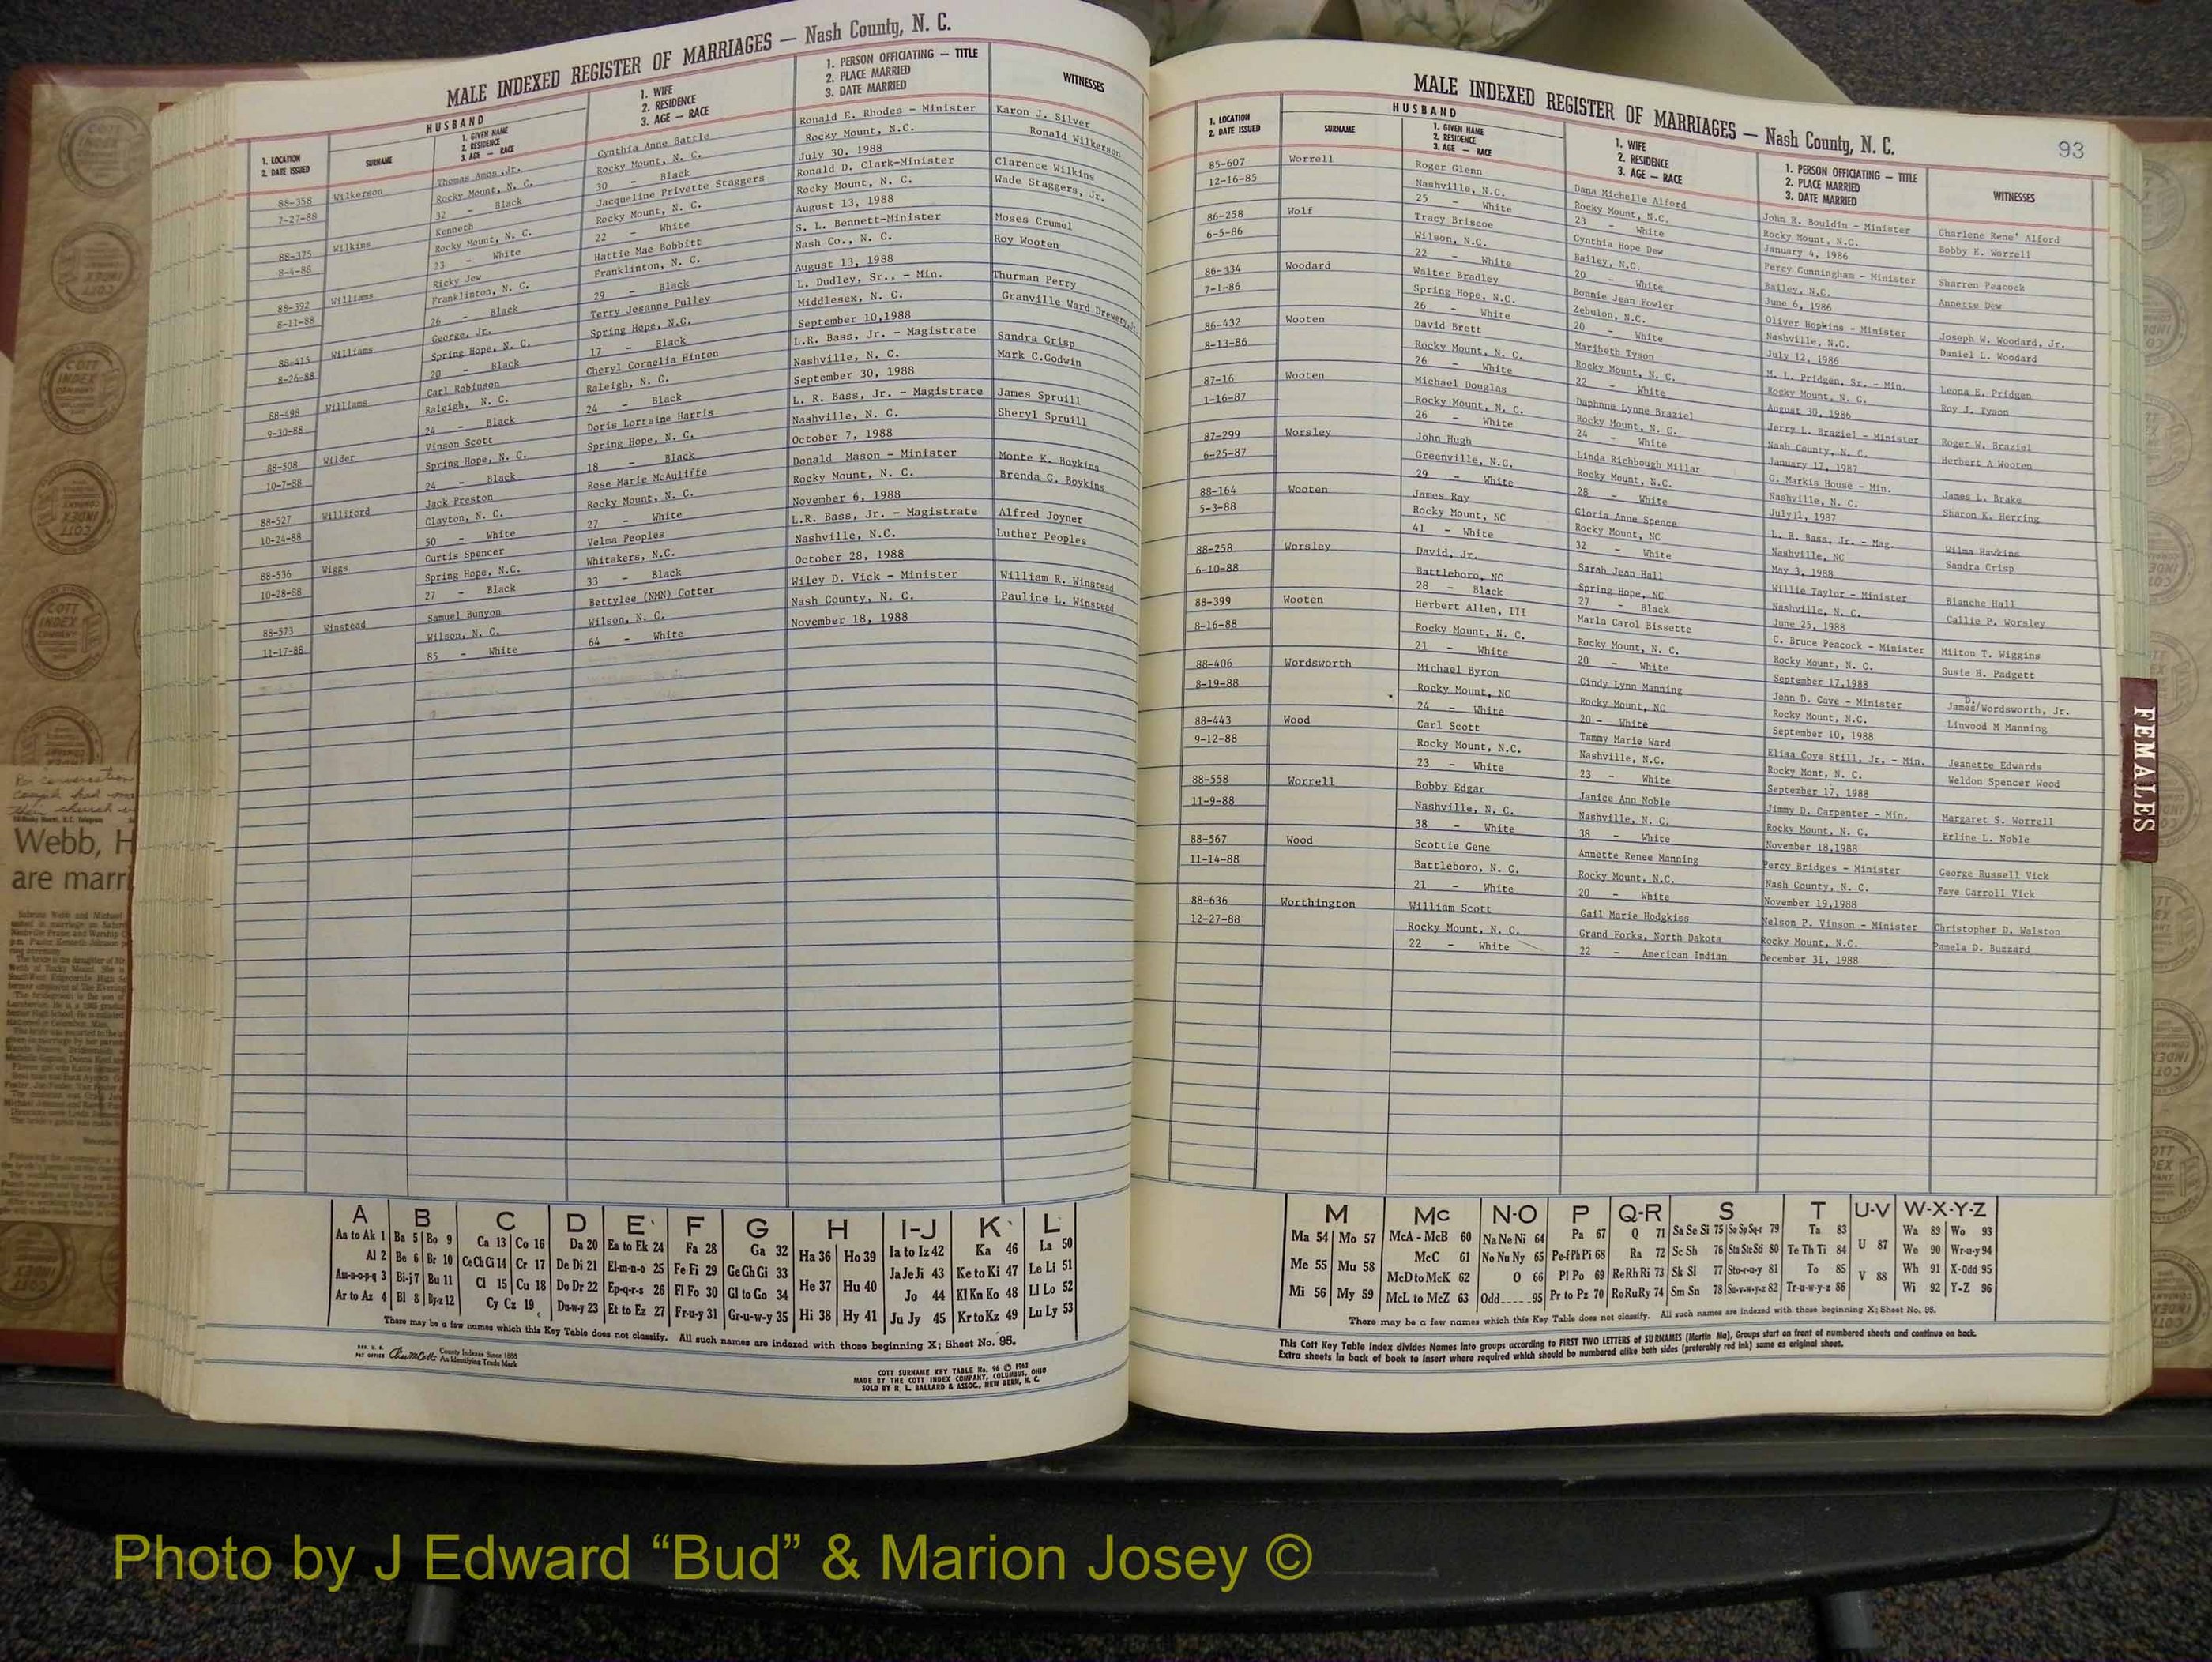 MALE INDEXED REGISTER OF MARRIAGES — Nash County, N. C.
1. LOCATION 2. DATE ISSUED
SURNAME
HUSBAND
1. GIVEN NAME 2. RESIDENCE 3. AGE — RACE
1. WIFE 2. RESIDENCE 3. AGE — RACE
1. PERSON OFFICIATING — TITLE 2. PLACE MARRIED 3. DATE MARRIED
WITNESSES
88-358 Wilkerson Thomas Amos, Jr. Cynthia Anne Battle Ronald E. Rhodes - Minister Karon J. Silver
7-27-88 Rocky Mount, N. C. Rocky Mount, N. C. Rocky Mount, N.C. Ronald Wilkerson
32 - Black 30 - Black July 30. 1988
88-375 Wilkins Kenneth Jacqueline Privette Staggers Ronald D. Clark-Minister Clarence Wilkins
8-4-88 Rocky Mount, N. C. Rocky Mount, N. C. Rocky Mount, N. C. Wade Staggers, Jr.
23 - White 22 - White August 13, 1988
88-392 Williams Ricky Jew Hattie Mae Bobbitt S. L. Bennett-Minister Moses Crumel
8-11-88 Franklinton, N. C. Franklinton, N. C. Nash Co., N. C. Roy Wooten
26 - Black 29 - Black August 13, 1988
88-415 Williams George, Jr. Terry Jesanne Pulley L. Dudley, Sr., - Min. Thurman Perry
8-26-88 Spring Hope, N. C. Spring Hope, N.C. Middlesex, N. C. Granville Ward Drewery, Jr.
20 - Black 17 - Black September 10,1988
88-498 Williams Carl Robinson Cheryl Cornelia Hinton L.R. Bass, Jr. - Magistrate Sandra Crisp
9-30-88 Raleigh, N. C. Raleigh, N. C. Nashville, N. C. Mark C.Godwin
24 - Black 24 - Black September 30, 1988
88-508 Wilder Vinson Scott Doris Lorraine Harris L. R. Bass, Jr. - Magistrate James Spruill
10-7-88 Spring Hope, N. C. Spring Hope, N. C. Nashville, N. C. Sheryl Spruill
24 - Black 18 - Black October 7, 1988
88-527 Williford Jack Preston Rose Marie McAuliffe Donald Mason - Minister Monte K. Boykins
10-24-88 Clayton, N. C. Rocky Mount, N. C. Rocky Mount, N. C. Brenda G. Boykins
50 - White 27 - White November 6, 1988
88-536 Wiggs Curtis Spencer Velma Peoples L.R. Bass, Jr. - Magistrate Alfred Joyner
10-28-88 Spring Hope, N.C. Whitakers, N.C. Nashville, N.C. Luther Peoples
27 - Black 33 - Black October 28, 1988
88-573 Winstead Samuel Bunyon Bettylee (NMN) Cotter Wiley D. Vick - Minister William R. Winstead
11-17-88 Wilson, N. C. Wilson, N. C. Nash County, N. C. Pauline L. Winstead
85 - White 64 - White November 18, 1988
A B C D E F G H I-J K L
Aa to Ak 1 Ba 5 Bo 9 Ca 13 Co 16 Da 20 Ea to Ek 24 Fa 28 Ga 32 Ha 36 Ho 39 Ia to Iz 42 Ka 46 La 50
Al 2 Be 6 Br 10 Ce Ch Ci 14 Cr 17 De Di 21 El-m-n-o 25 Fe Fi 29 Ge Gh Gi 33 He 37 Hu 40 Ja Je Ji 43 Ke to Ki 47 Le Li 51
Am-n-o-p-q 3 Bi-j 7 Bu 11 Cl 15 Cu 18 Do Dr 22 Ep-q-r-s 26 Fl Fo 30 Gl to Go 34 Jo 44 Kl Kn Ko 48 Ll Lo 52
Ar to Az 4 Bl 8 By-z 12 Cy Cz 19 Du-w-y 23 Et to Ez 27 Fr-u-y 31 Gr-u-w-y 35 Hi 38 Hy 41 Ju Jy 45 Kr to Kz 49 Lu Ly 53
There may be a few names which this Key Table does not classify. All such names are indexed with those beginning X; Sheet No. 95.
County Indexes Since 1888
An Identifying Trade Mark
COTT SURNAME KEY TABLE No. 96 © 1962
MADE BY THE COTT INDEX COMPANY, COLUMBUS, OHIO
SOLD BY R. L. BALLARD & ASSOC., NEW BERN, N. C.
MALE INDEXED REGISTER OF MARRIAGES — Nash County, N. C.
93
1. LOCATION 2. DATE ISSUED
SURNAME
HUSBAND
1. GIVEN NAME 2. RESIDENCE 3. AGE — RACE
1. WIFE 2. RESIDENCE 3. AGE — RACE
1. PERSON OFFICIATING — TITLE 2. PLACE MARRIED 3. DATE MARRIED
WITNESSES
85-607 Worrell Roger Glenn Dana Michelle Alford John R. Bouldin - Minister Charlene Rene' Alford
12-16-85 Nashville, N.C. Rocky Mount, N.C. Rocky Mount, N.C. Bobby E. Worrell
25 - White 23 - White January 4, 1986
86-258 Wolf Tracy Briscoe Cynthia Hope Dew Percy Cunningham - Minister Sharren Peacock
6-5-86 Wilson, N.C. Bailey, N.C. Bailey, N.C. Annette Dew
22 - White 20 - White June 6, 1986
86-334 Woodard Walter Bradley Bonnie Jean Fowler Oliver Hopkins - Minister Joseph W. Woodard, Jr.
7-1-86 Spring Hope, N.C. Zebulon, N.C. Nashville, N.C. Daniel L. Woodard
26 - White 20 - White July 12, 1986
86-432 Wooten David Brett Maribeth Tyson M. L. Pridgen, Sr. - Min. Leona E. Pridgen
8-13-86 Rocky Mount, N. C. Rocky Mount, N. C. Rocky Mount, N. C. Roy J. Tyson
26 - White 22 - White August 30, 1986
87-16 Wooten Michael Douglas Daphnne Lynne Braziel Jerry L. Braziel - Minister Roger W. Braziel
1-16-87 Rocky Mount, N. C. Rocky Mount, N. C. Nash County, N. C. Herbert A Wooten
26 - White 24 - White January 17, 1987
87-299 Worsley John Hugh Linda Richbough Millar G. Markis House - Min. James L. Brake
6-25-87 Greenville, N.C. Rocky Mount, N.C. Nashville, N. C. Sharon K. Herring
29 - White 28 - White July11, 1987
88-164 Wooten James Ray Gloria Anne Spence L. R. Bass, Jr. - Mag. Wilma Hawkins
5-3-88 Rocky Mount, NC Rocky Mount, NC Nashville, NC Sandra Crisp
41 - White 32 - White May 3, 1988
88-258 Worsley David, Jr. Sarah Jean Hall Willie Taylor - Minister Blanche Hall
6-10-88 Battleboro, NC Spring Hope, NC Nashville, N. C. Callie P. Worsley
28 - Black 27 - Black June 25, 1988
88-399 Wooten Herbert Allen, III Marla Carol Bissette C. Bruce Peacock - Minister Milton T. Wiggins
8-16-88 Rocky Mount, N. C. Rocky Mount, N. C. Rocky Mount, N. C. Susie H. Padgett
21 - White 20 - White September 17,1988
88-406 Wordsworth Michael Byron Cindy Lynn Manning John D. Cave - Minister James/D. Wordsworth, Jr.
8-19-88 Rocky Mount, NC Rocky Mount, NC Rocky Mount, N.C. Linwood M Manning
24 - White 20 - White September 10, 1988
88-443 Wood Carl Scott Tammy Marie Ward Elisa Coye Still, Jr. - Min. Jeanette Edwards
9-12-88 Rocky Mount, N.C. Nashville, N.C. Rocky Mont, N. C. Weldon Spencer Wood
23 - White 23 - White September 17, 1988
88-558 Worrell Bobby Edgar Janice Ann Noble Jimmy D. Carpenter - Min. Margaret S. Worrell
11-9-88 Nashville, N. C. Nashville, N. C. Rocky Mount, N. C. Erline L. Noble
38 - White 38 - White November 18,1988
88-567 Wood Scottie Gene Annette Renee Manning Percy Bridges - Minister George Russell Vick
11-14-88 Battleboro, N. C. Rocky Mount, N.C. Nash County, N. C. Faye Carroll Vick
21 - White 20 - White November 19,1988
88-636 Worthington William Scott Gail Marie Hodgkiss Nelson P. Vinson - Minister Christopher D. Walston
12-27-88 Rocky Mount, N. C. Grand Forks, North Dakota Rocky Mount, N.C. Pamela D. Buzzard
22 - White 22 - American Indian December 31, 1988
M Mc N-O P Q-R S T U-V W-X-Y-Z
Ma 54 Mo 57 McA - McB 60 Na Ne Ni 64 Pa 67 Q 71 Sa Se Si 75 So Sp Sq-r 79 Ta 83 U 87 Wa 89 Wo 93
Me 55 Mu 58 McC 61 No Nu Ny 65 Pe-f Ph Pi 68 Ra 72 Sc Sh 76 Sta Ste Sti 80 Te Th Ti 84 We 90 Wr-u-y 94
McD to McK 62 O 66 Pl Po 69 Re Rh Ri 73 Sk Sl 77 Sto-r-u-y 81 To 85 V 88 Wh 91 X-Odd 95
Mi 56 My 59 McL to McZ 63 Odd.....95 Pr to Pz 70 Ro Ru Ry 74 Sm Sn 78 Su-v-w-y-z 82 Tr-u-w-y-z 86 Wi 92 Y-Z 96
There may be a few names which this Key Table does not classify. All such names are indexed with those beginning X; Sheet No. 95.
This Cott Key Table Index divides Names into groups according to FIRST TWO LETTERS of SURNAMES (Martin Ma), Groups start on front of numbered sheets and continue on back.
Extra sheets in back of book to insert where required which should be numbered alike both sides (preferably red ink) same as original sheet.
FEMALES
Webb, H
are marri
Photo by J Edward “Bud” & Marion Josey ©